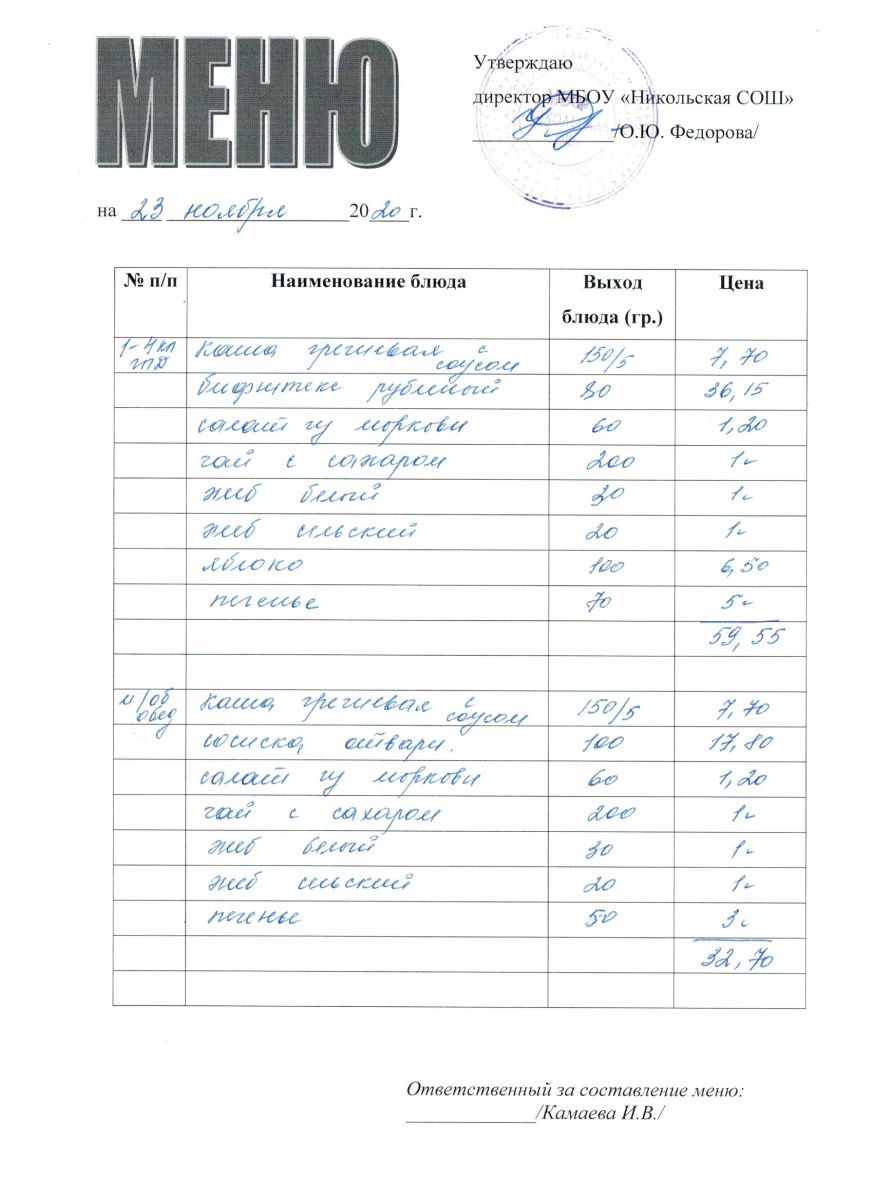 МЕНЮ
Утверждаю
директор МБОУ «Никольская СОШ»
/О.Ю. Федорова/
на 23 ноября 2020 г.
№ п/п Наименование блюда Выход блюда (гр.) Цена
1-4 кл ГПД каша гречневая с соусом 150/5 7,70
бифштекс рубленый 80 36,15
салат из моркови 60 1,20
чай с сахаром 200 1-
хлеб белый 30 1-
хлеб сельский 20 1-
яблоко 100 6,50
печенье 70 5-
59,55
м/об обед каша гречневая с соусом 150/5 7,70
сосиска отварн. 100 17,80
салат из моркови 60 1,20
чай с сахаром 200 1-
хлеб белый 30 1-
хлеб сельский 20 1-
печенье 50 3-
32,70
Ответственный за составление меню:
/Камаева И.В./